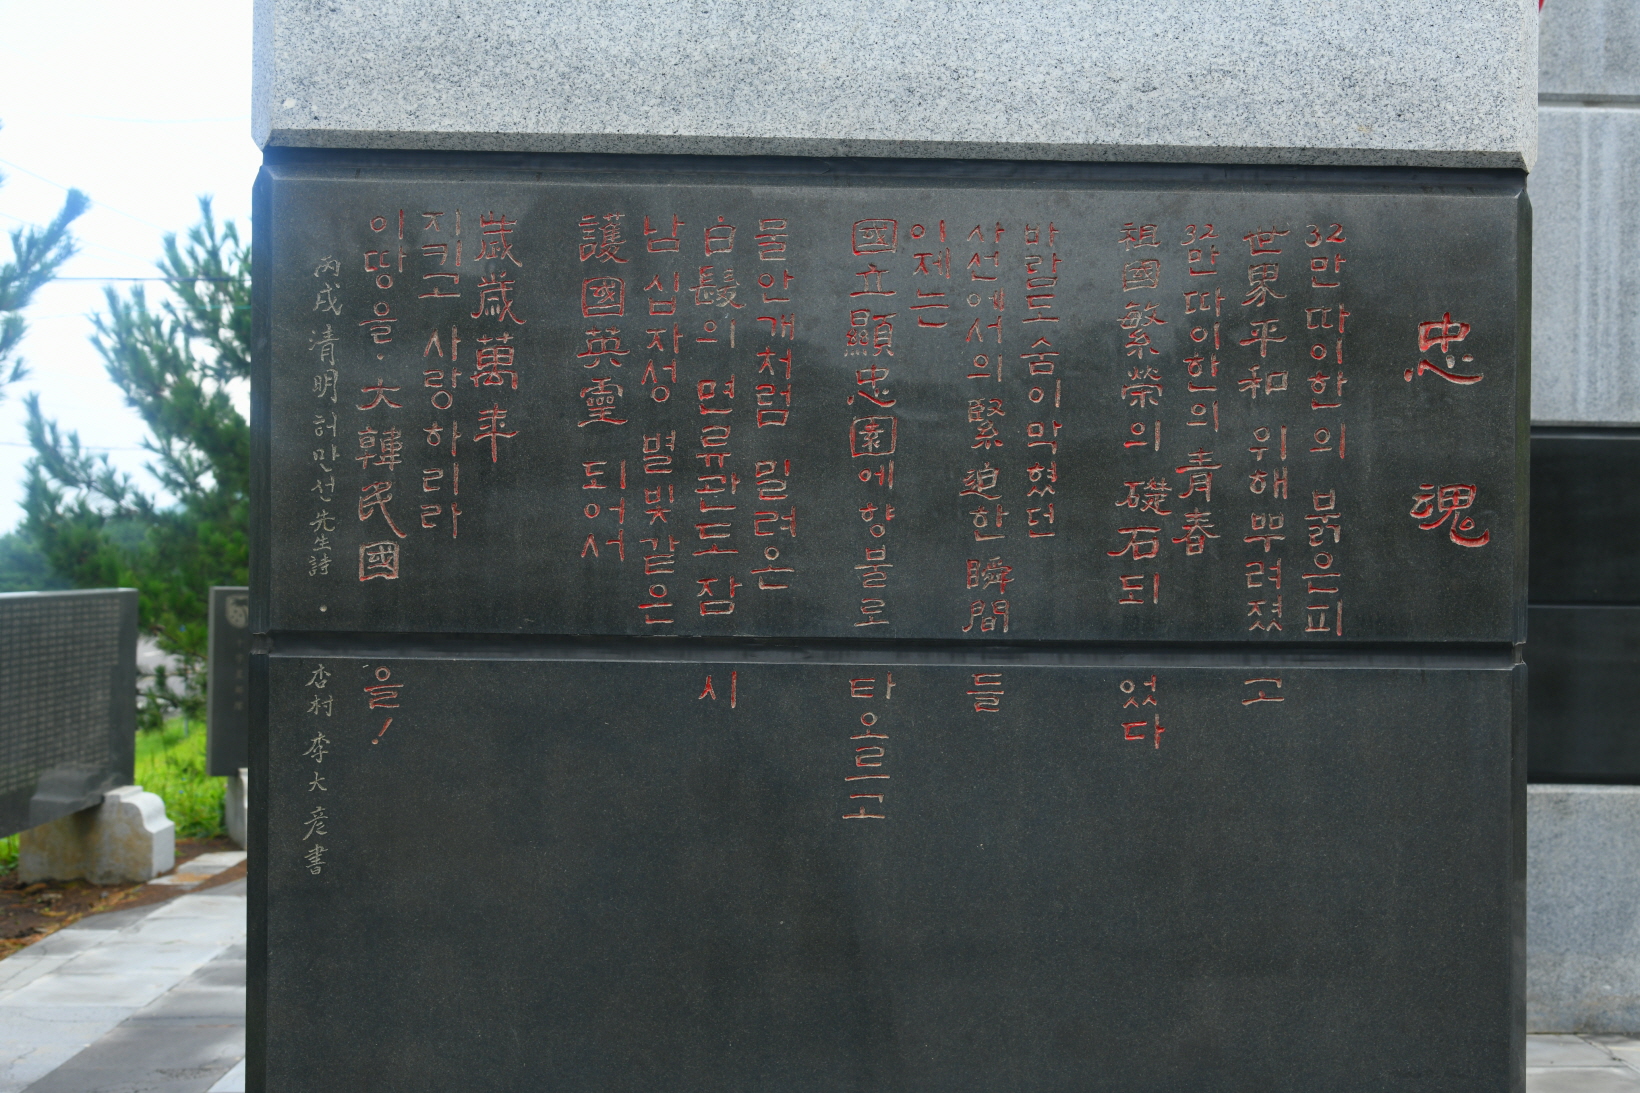 忠魂
32만 따이한의 붉은피
世界平和 위해 뿌려졌고
32만 따이한의 靑春
祖國繁榮의 礎石되었다
바람도 숨이 막혔던
사선에서의 緊迫한 瞬間들
이제는
國立顯忠園에 향불로 타오르고
물안개처럼 밀려온
白髮의 면류관도 잠시
남십자성 별빛같은
護國英靈 되어서
歲歲萬年
지키고 사랑하리라
이땅을. 大韓民國을!
丙戌 淸明 허만선 先生詩. 杏村 李大彦書